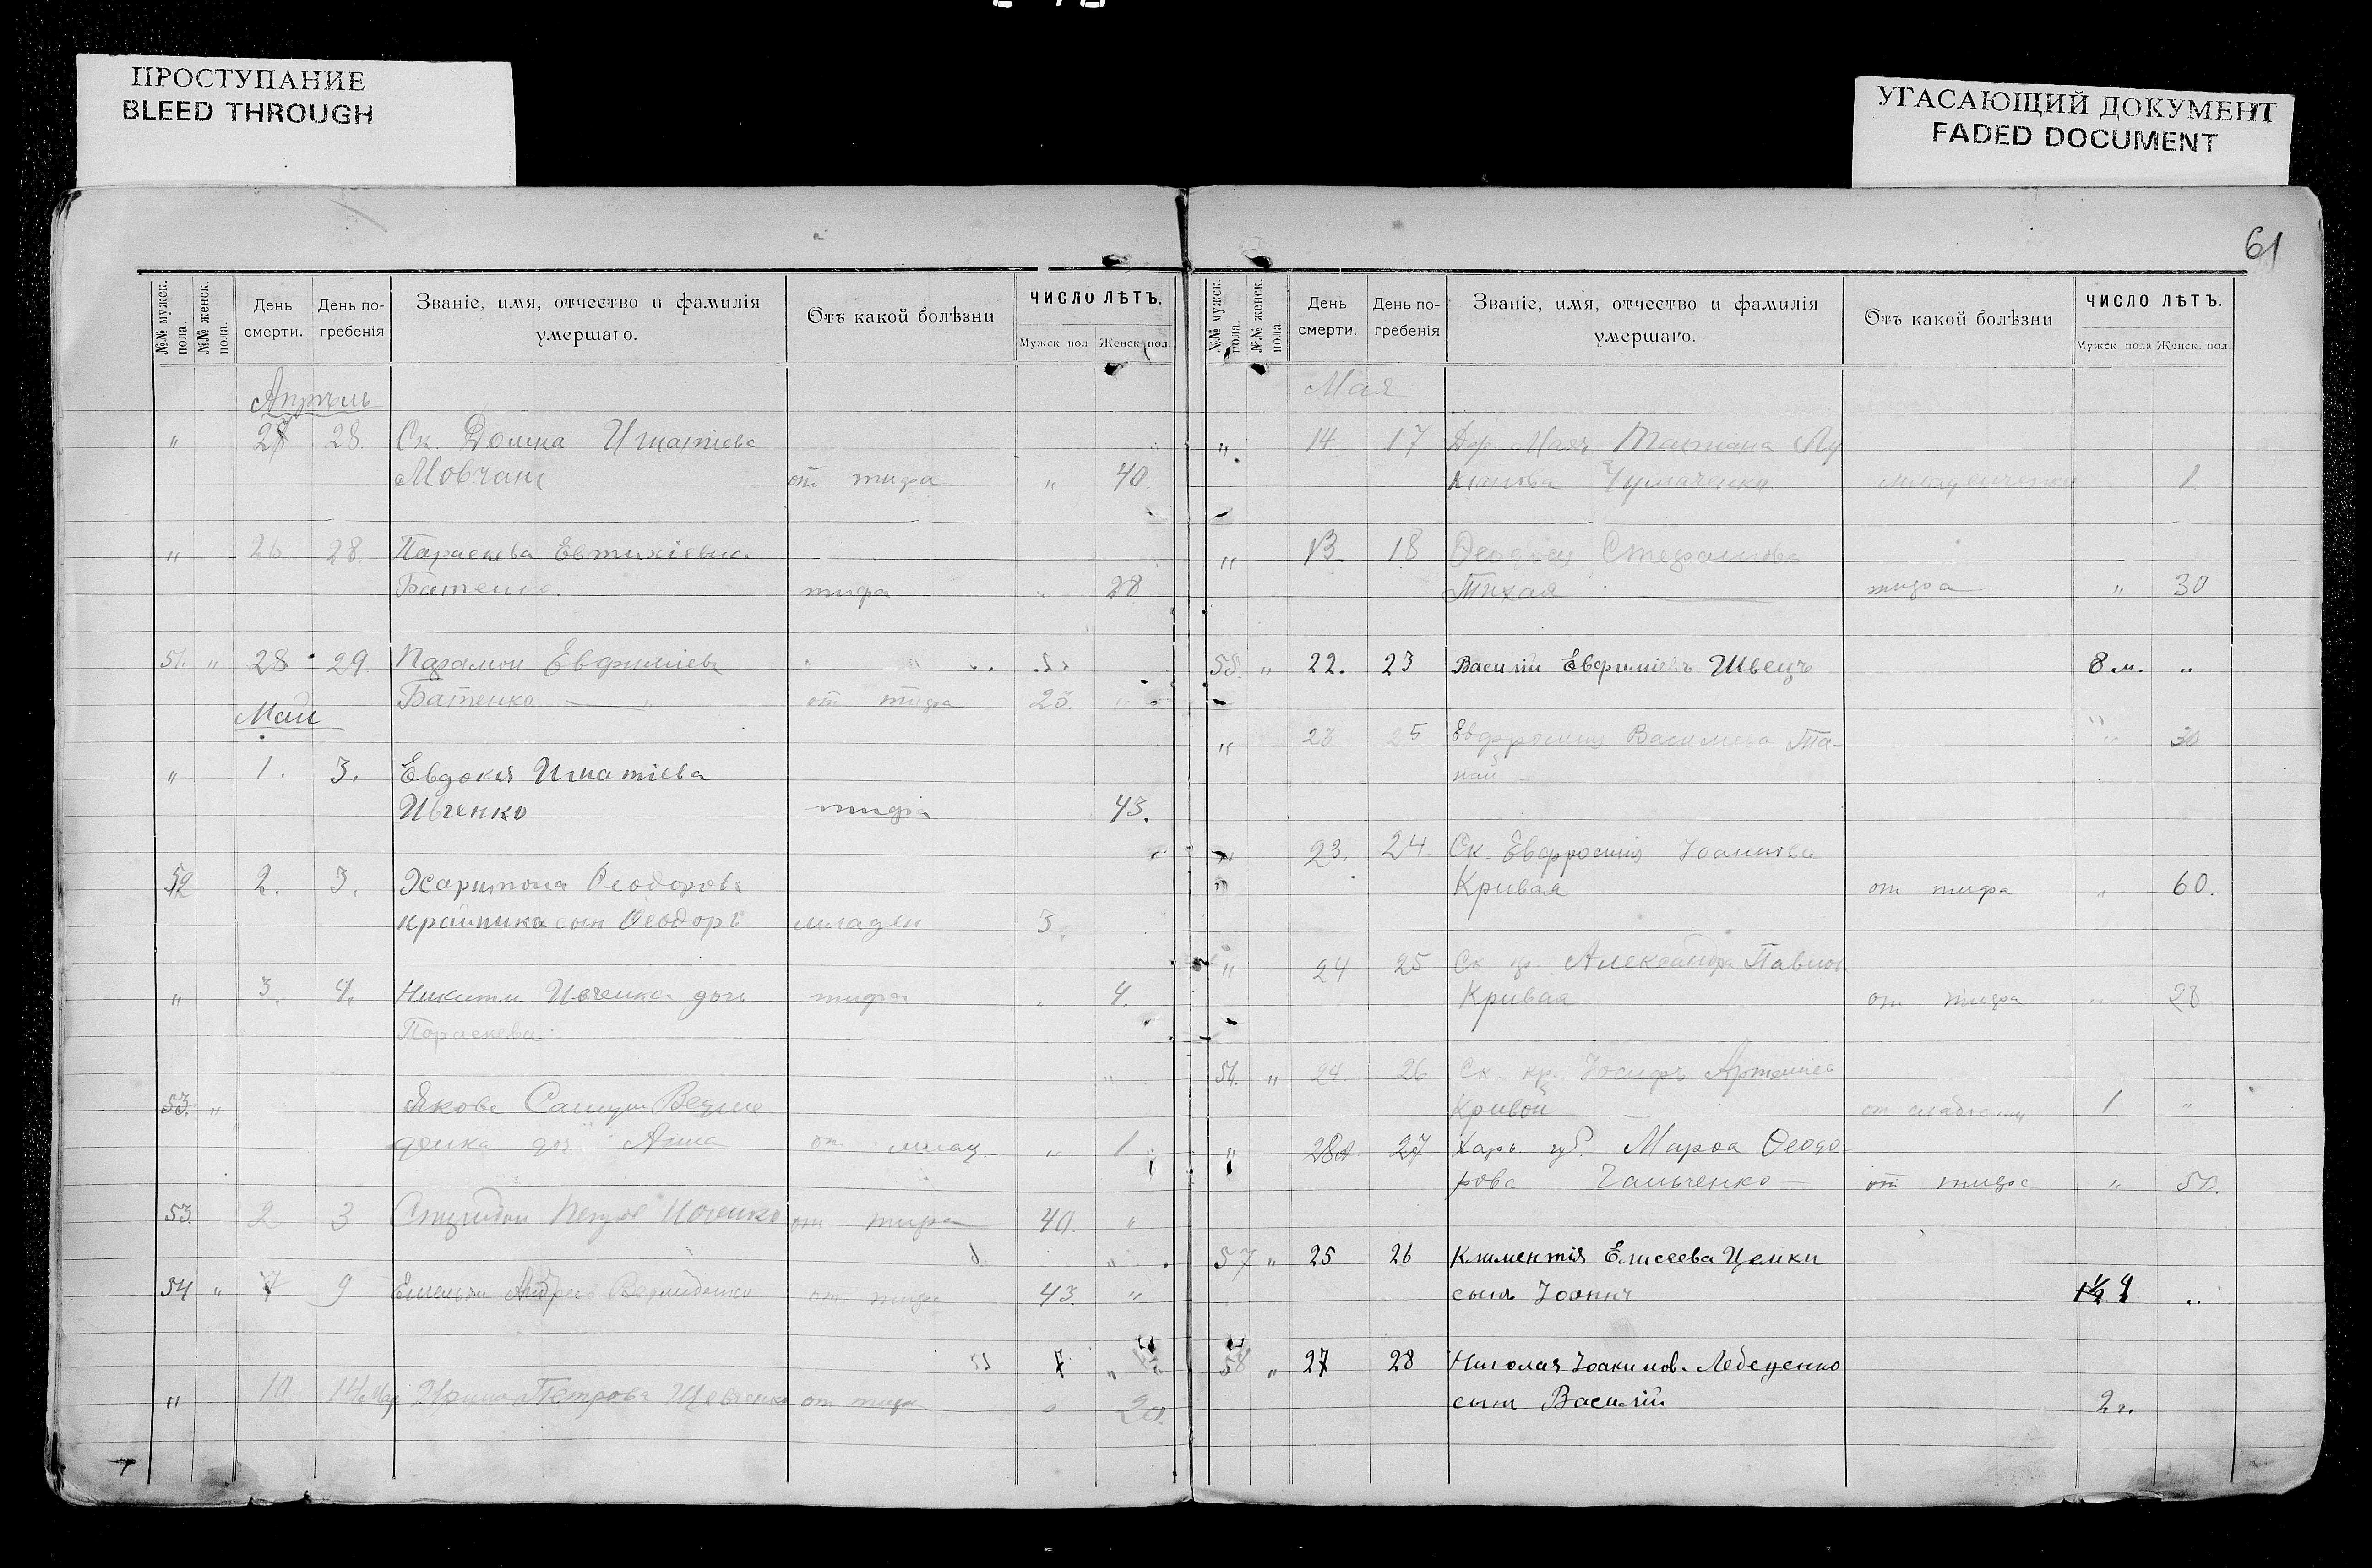 ПРОСТУПАНИЕ
BLEED THROUGH
УГАСАЮЩИЙ ДОКУМЕНТ
FADED DOCUMENT
61
№№ мужск. пола. №№ женск. пола. День смерти. День по-гребенія Званіе, имя, отчество и фамилія умершаго. Отъ какой болѣзни ЧИСЛО ЛѢТЪ. Мужск пол Женск пол.
Апрель
" 27 28. Ск. Домна Игнатіева
Мовчанъ от тифа " 40.
" 26 28. Параскева Евтихіевна
Батенко. тифа " 28
51. " 28 29. Парамон Евфиміевъ
Батенко от тифа 23. "
Май
" 1. 3. Евдокія Игнатіева
Ивченко тифа 43.
52 2. 3. Харитона Ѳеодорова
сын Ѳеодоръ младен 3.
" 3. 4. Никиты Ивченка дочь тифа " 4.
Пораскева
53. " Якова
дочь Анна от млад. " 1
53. 2 3 Спиридон Петров Ивченко от тифа 40. "
54 " 7 9 Емельян Андреев от тифа 43. "
" 10 Ирина Петрова Шевченко от тифа " 20.
№№ мужск. пола. №№ женск. пола. День смерти. День по-гребенія Званіе, имя, отчество и фамилія умершаго. Отъ какой болѣзни ЧИСЛО ЛѢТЪ. Мужск пола Женск. пол.
Мая
" 14 17 Татіана Лу
кіанова Чумаченко 1.
" 13. 18 Ѳеодосія Стефанова
Тихая тифа " 30
55. " 22. 23 Василій Евфиміевъ Швецъ 8 м. "
" 23 25 Евфросинія Василіева " 30
" 23. 24. Ск. Евфросинія Іоаннова
Кривая от тифа " 60.
" 24 25 Ск. кр. Александра Павлов
Кривая от тифа " 28
56. " 24. 26 Ск. кр. Іосифъ Артеміев
Кривой от слабости 1. "
" 27. Харь. губ. Марѳа Ѳеодо
рова Гальченко от тифа " 50.
57 " 25 26 Климентія Елисеева Цемки
сынъ Іоаннъ "
58 " 27 28 Николая Іоакимов. Лебеденко
сын Василій 2 г.